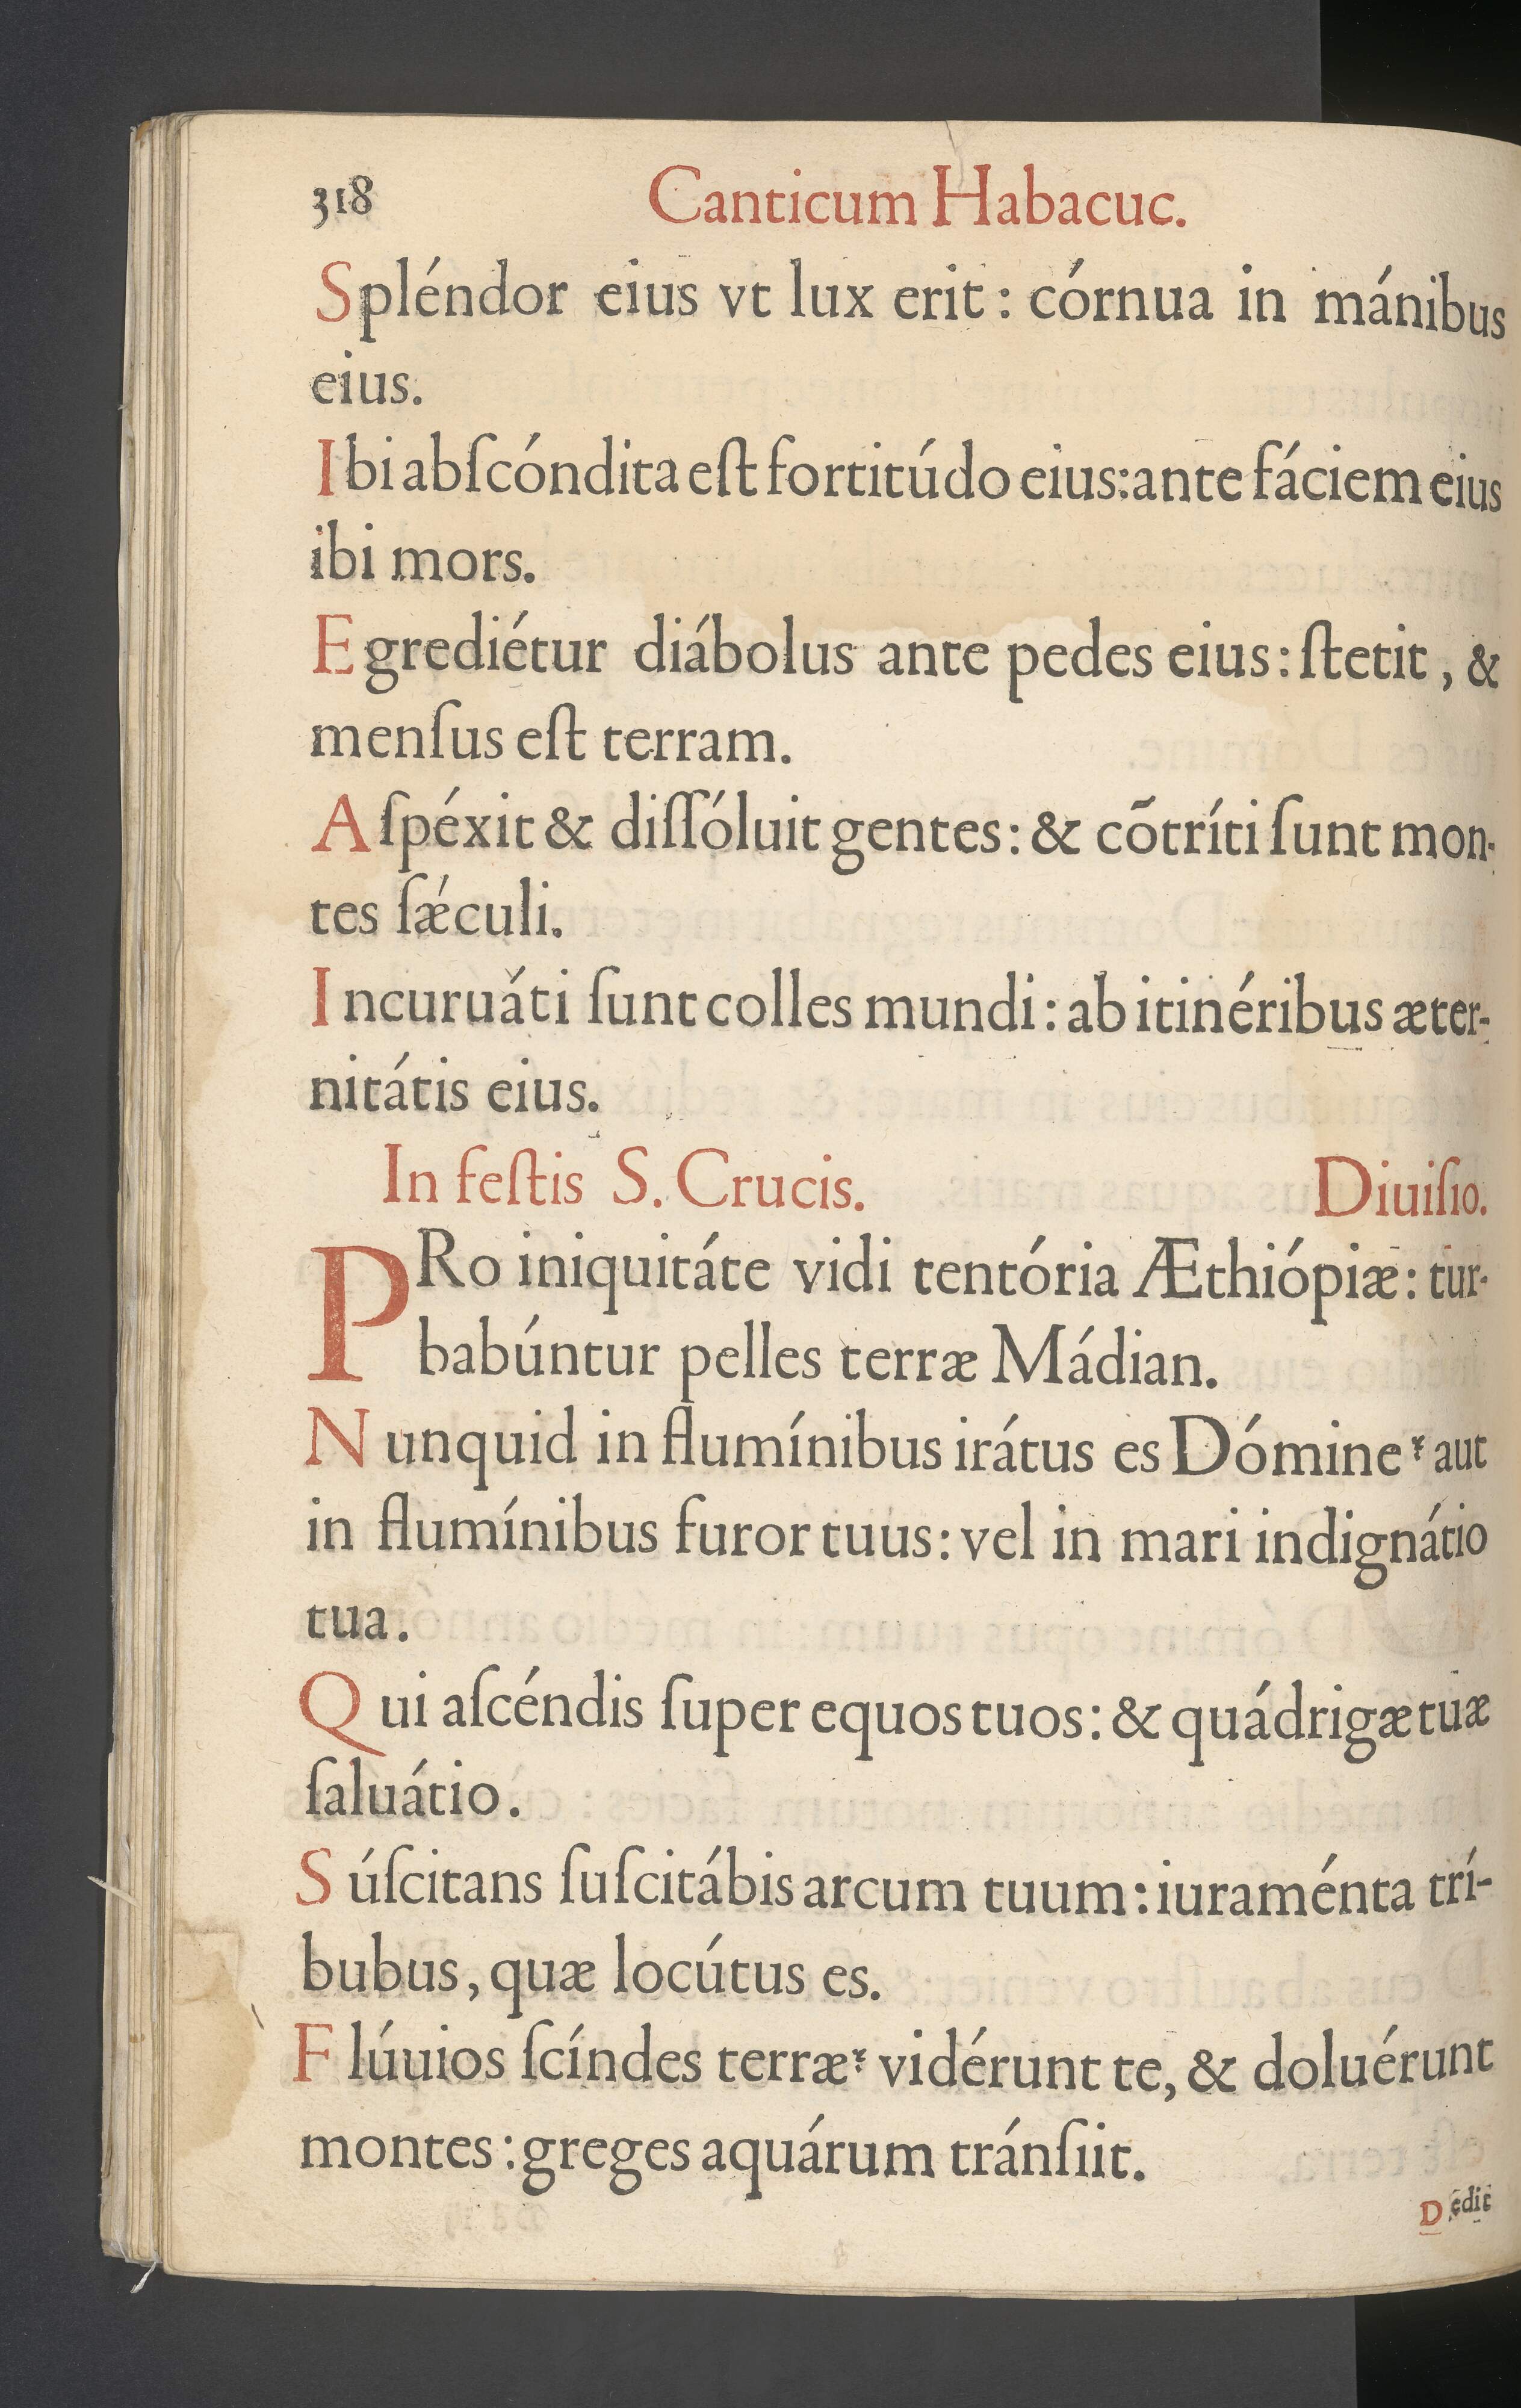 318 Canticum Habacuc.
Spléndor eius vt lux erit : córnua in mánibus
eius.
Ibi abſcóndita eſt fortitúdo eius: ante fáciem eius
ibi mors.
Egrediétur diábolus ante pedes eius : ſtetit , &
menſus eſt terram.
Aſpéxit & diſſóluit gentes : & cõtríti ſunt mon-
tes ſǽculi.
Incuruáti ſunt colles mundi : ab itinéribus æter-
nitátis eius.
In feſtis S. Crucis. Diuiſio.
PRo iniquitáte vidi tentória Æthiópiæ : tur-
babúntur pelles terræ Mádian.
Nunquid in flumínibus irátus es Dómine * aut
in flumínibus furor tuus : vel in mari indignátio
tua.
Qui aſcéndis ſuper equos tuos : & quádrigæ tuæ
ſaluátio.
Súſcitans ſuſcitábis arcum tuum : iuraménta trí-
bubus, quæ locútus es.
Flúuios ſcíndes terræ * vidérunt te, & doluérunt
montes : greges aquárum tránſiit.
Dedit